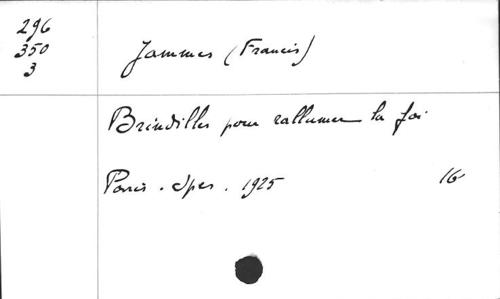 296
350
3
Jammes (Francis)
Brindilles pour rallumer la foi
Paris . Spes . 1925 16